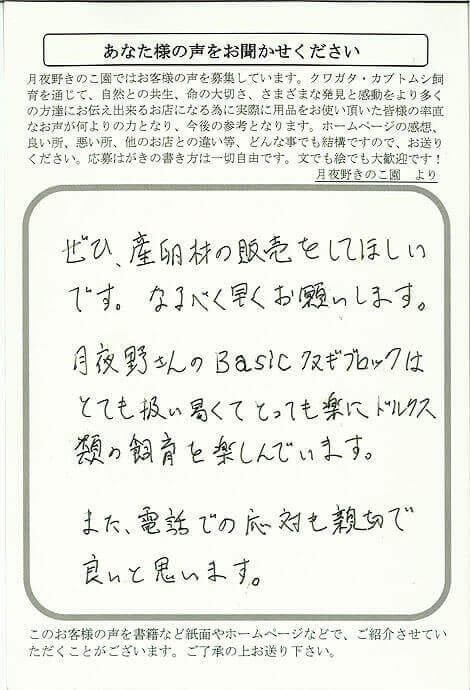 あなた様の声をお聞かせください
月夜野きのこ園ではお客様の声を募集しています。クワガタ・カブトムシ飼
育を通じて、自然との共生、命の大切さ、さまざまな発見と感動をより多く
の方達にお伝え出来るお店になる為に実際に用品をお使い頂いた皆様の率直
なお声が何よりの力となり、今後の参考となります。ホームページの感想、
良い所、悪い所、他のお店との違い等、どんな事でも結構ですので、お送り
ください。応募はがきの書き方は一切自由です。文でも絵でも大歓迎です！
月夜野きのこ園　より
ぜひ、産卵材の販売をしてほしい
です。なるべく早くお願いします。
月夜野さんのBasicクヌギブロックは
とても扱い易くてとっても楽にドルクス
類の飼育を楽しんでいます。
また、電話での応対も親切で
良いと思います。
このお客様の声を書籍など紙面やホームページなどで、ご紹介させてい
ただくことがございます。ご了承の上お送り下さい。